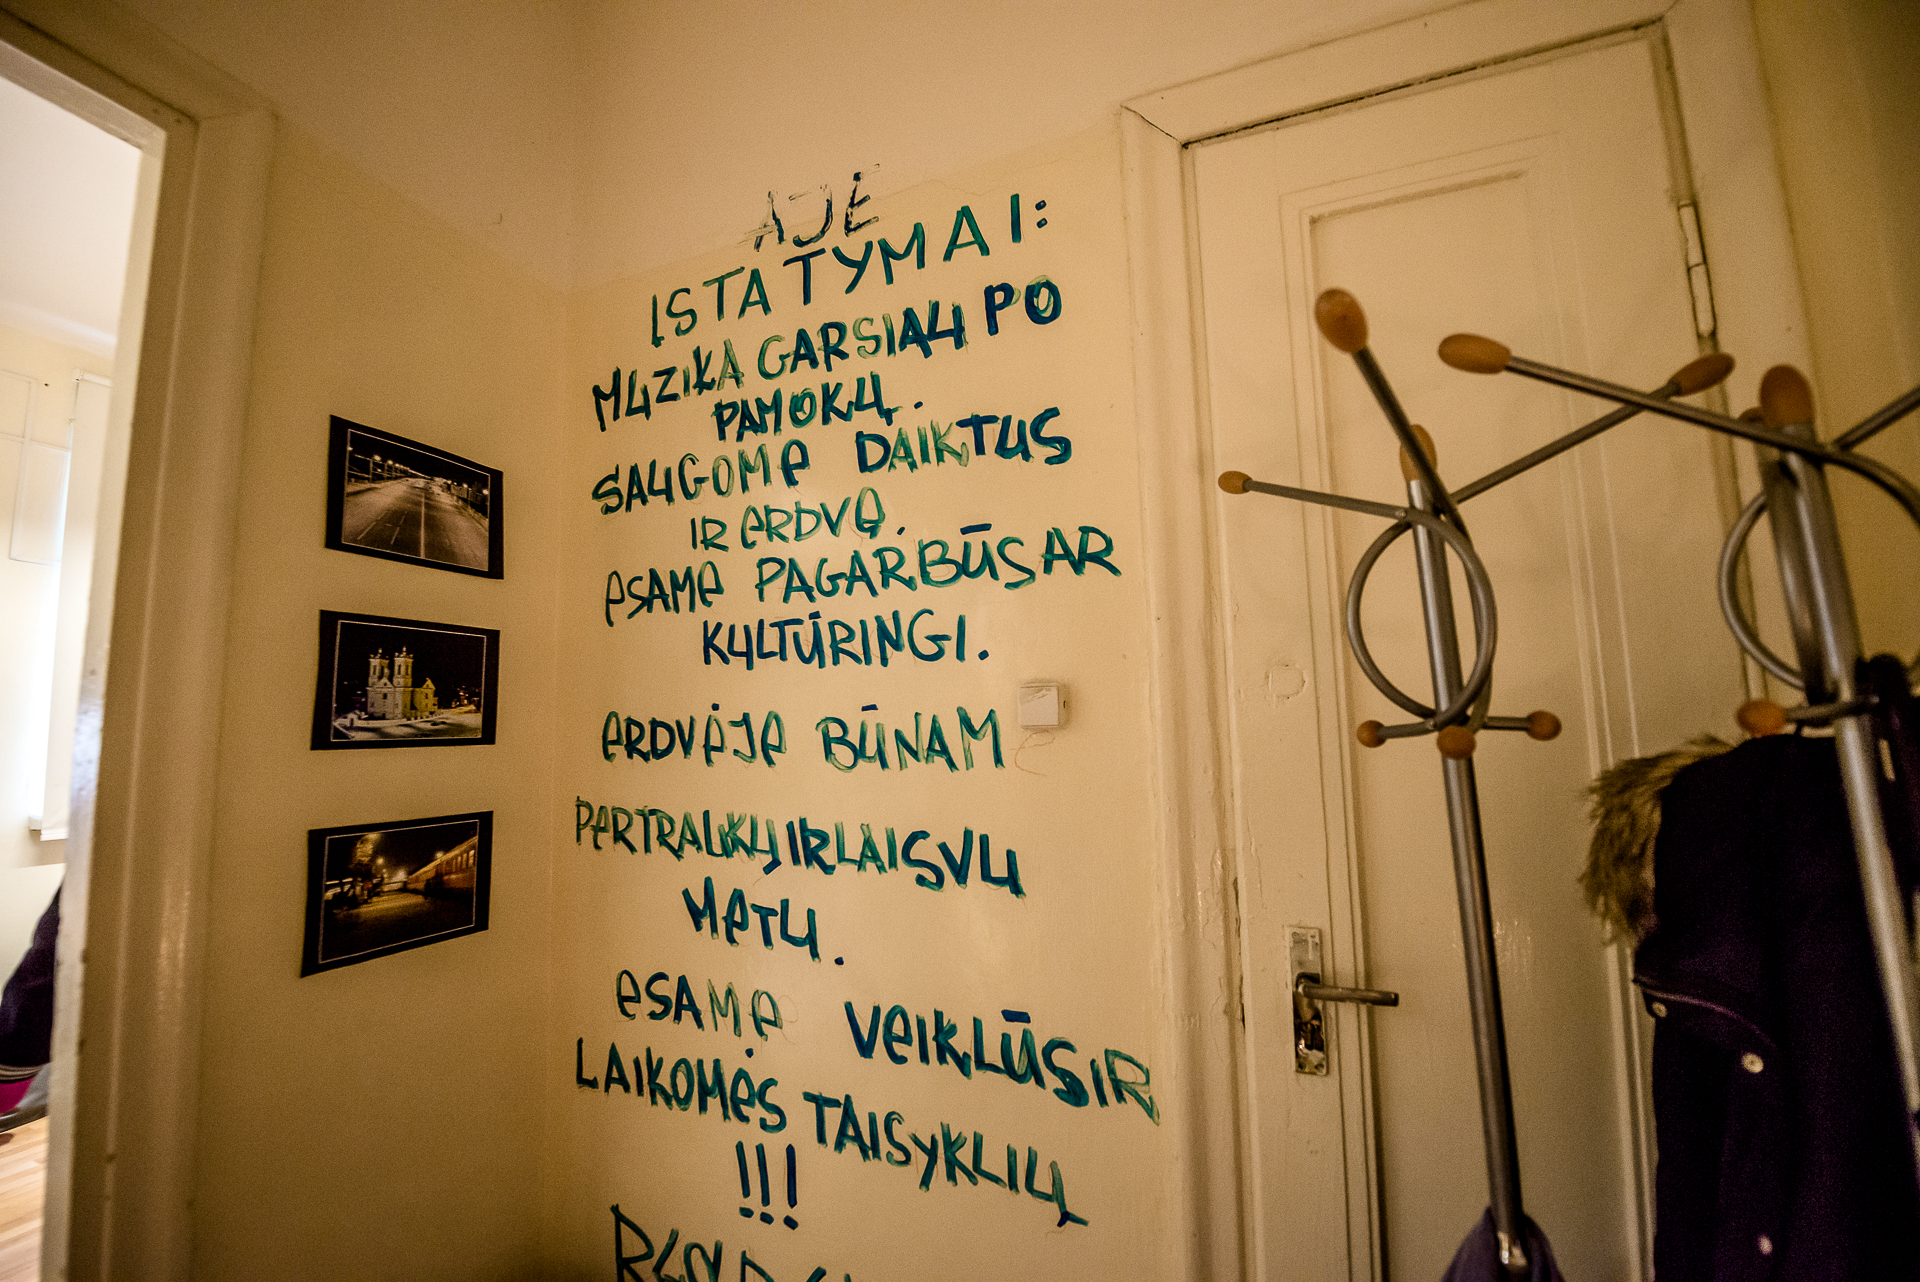 AJĖ
ĮSTATYMAI:
MUZIKA GARSIAU PO
PAMOKŲ.
SAUGOME DAIKTUS
IR ERDVĘ.
ESAME PAGARBŪS AR
KULTŪRINGI.
ERDVĖJE BŪNAM
PERTRAUKŲ IR LAISVU
METU.
ESAME VEIKLŪS IR
LAIKOMĖS TAISYKLIŲ
!!!